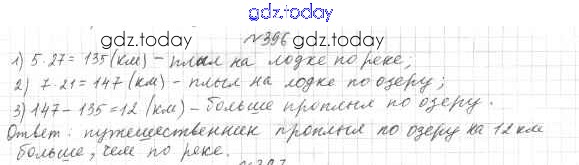 gdz.today
№396
gdz.today gdz.today
1) 5·27=135(км)-плыл на лодке по реке;
2) 7·21=147(км)-плыл на лодке по озеру;
3) 147-135=12(км)-больше проплыл по озеру.
Ответ: путешественник проплыл по озеру на 12 км
больше, чем по реке.